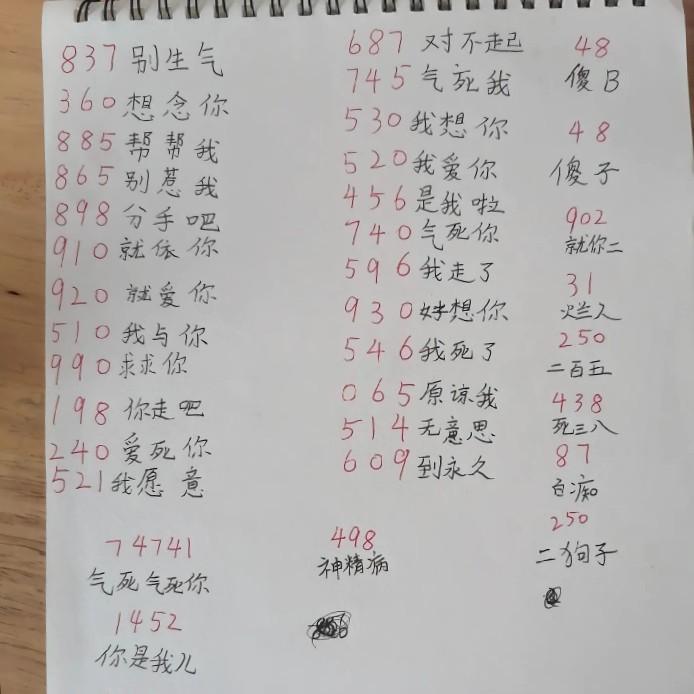 837 别生气
360 想念你
885 帮帮我
865 别惹我
898 分手吧
910 就依你
920 就爱你
510 我与你
990 求求你
198 你走吧
240 爱死你
521 我愿意
74741
气死气死你
1452
你是我儿
687 对不起
745 气死我
530 我想你
520 我爱你
456 是我啦
740 气死你
596 我走了
930 好想你
546 我死了
065 原谅我
514 无意思
609 到永久
498
神精病
48
傻B
48
傻子
902
就你二
31
烂人
250
二百五
438
死三八
87
白痴
250
二狗子